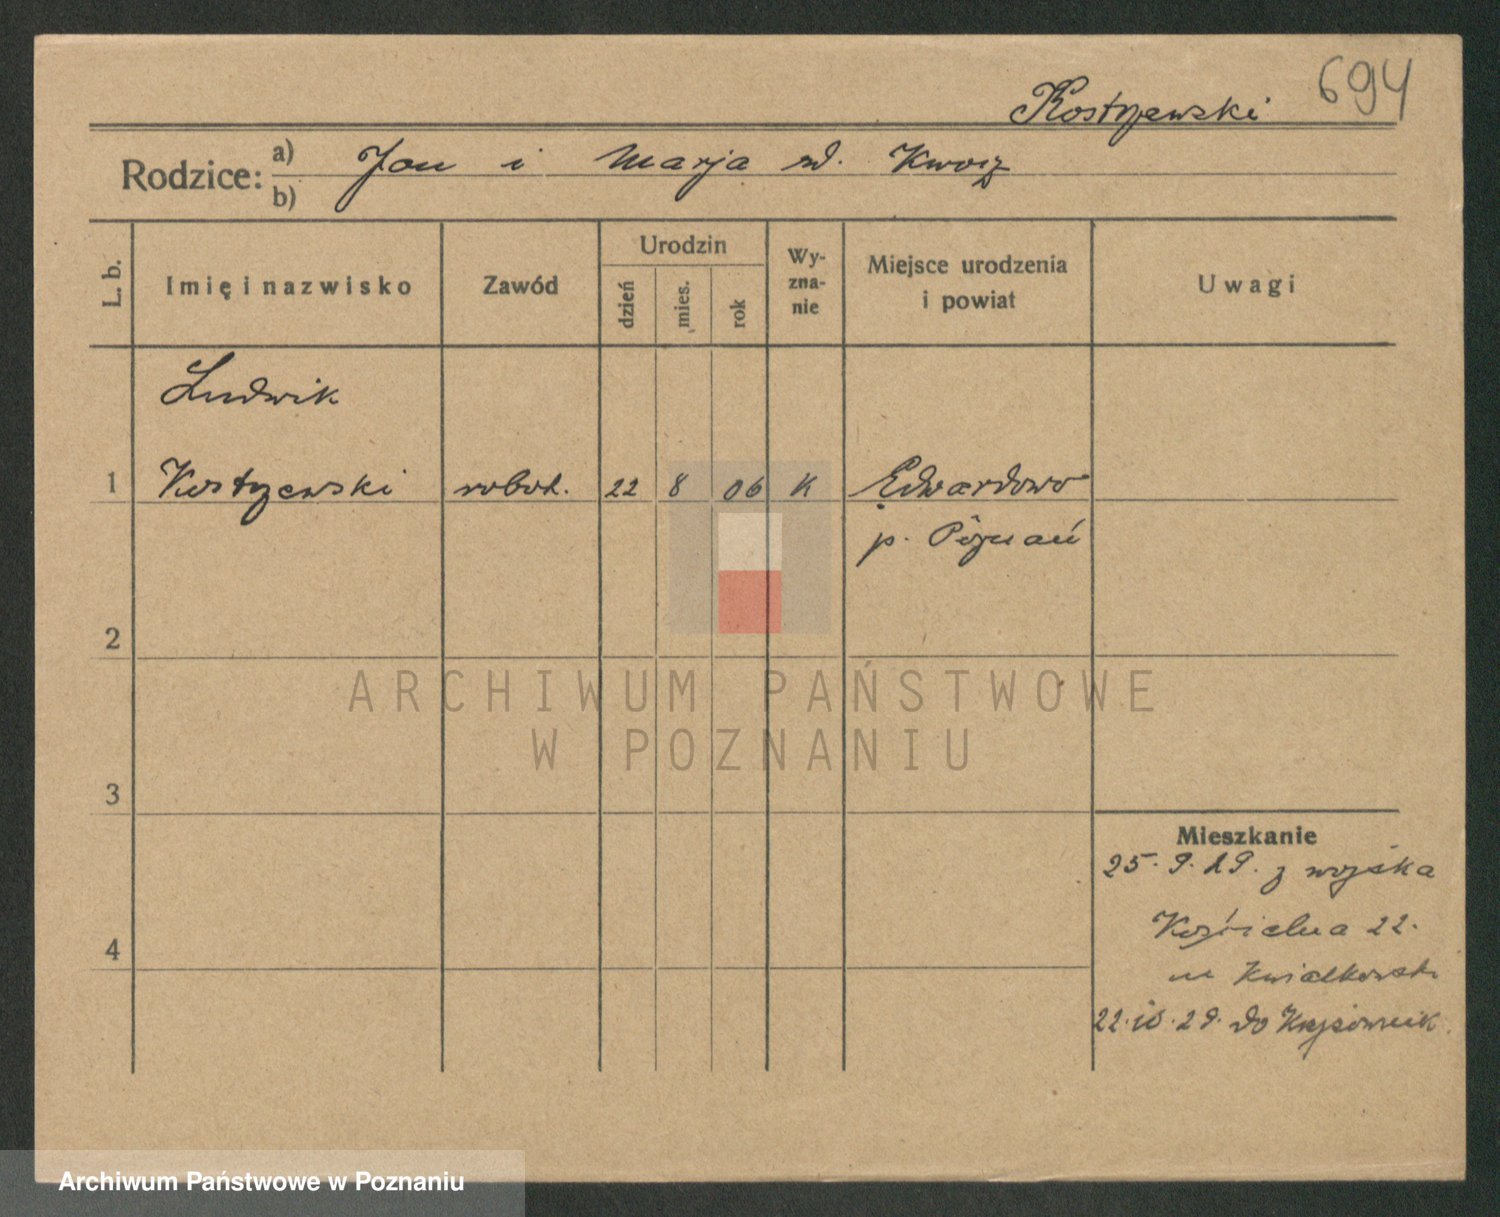 694
Kostrzewski
Rodzice: a) Jan i Marja zd.
b)
L. b.
Imię i nazwisko
Zawód
Urodzin
dzień
mies.
rok
Wy-
zna-
nie
Miejsce urodzenia
i powiat
Uwagi
Ludwik
1 Kostrzewski robot. 22 8 06 K Edwardowo
p. Poznań
2
ARCHIWUM PAŃSTWOWE
W POZNANIU
3
Mieszkanie
25.9.29. z wojska
Kościelna 22.
4
22.10.29. do
Archiwum Państwowe w Poznaniu